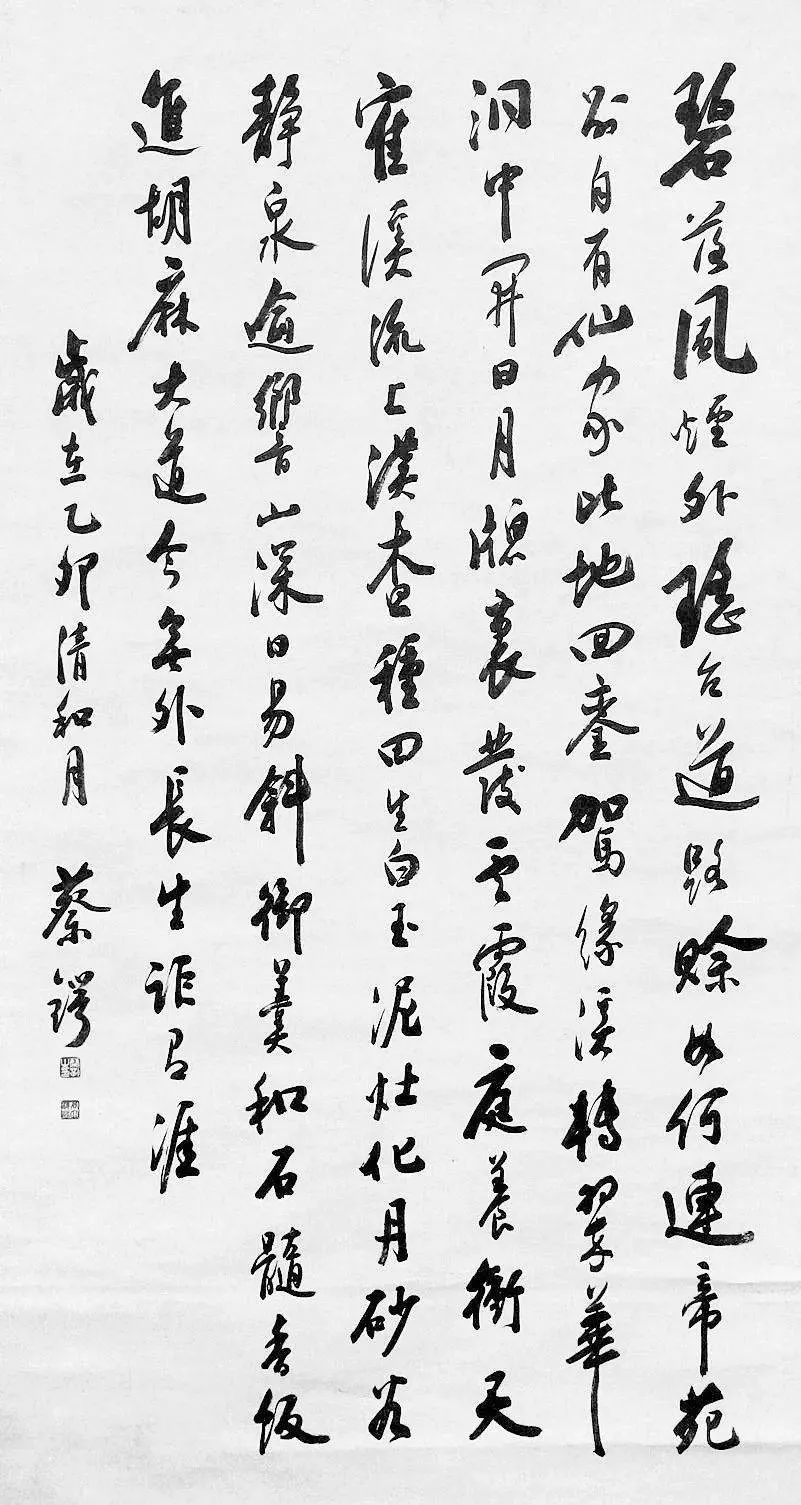 碧落風煙外瑤台道路賒如何連帝苑
別自有仙家此地回鑾駕緣溪轉翠華
洞中開日月牕裏發云霞庭養衝天
寉溪流上漢查種田生白玉泥灶化丹砂谷
靜泉逾響山深日易斜御羹和石髓香飯
進胡麻大道今無外長生詎有涯
歲在乙卯清和月 蔡鍔